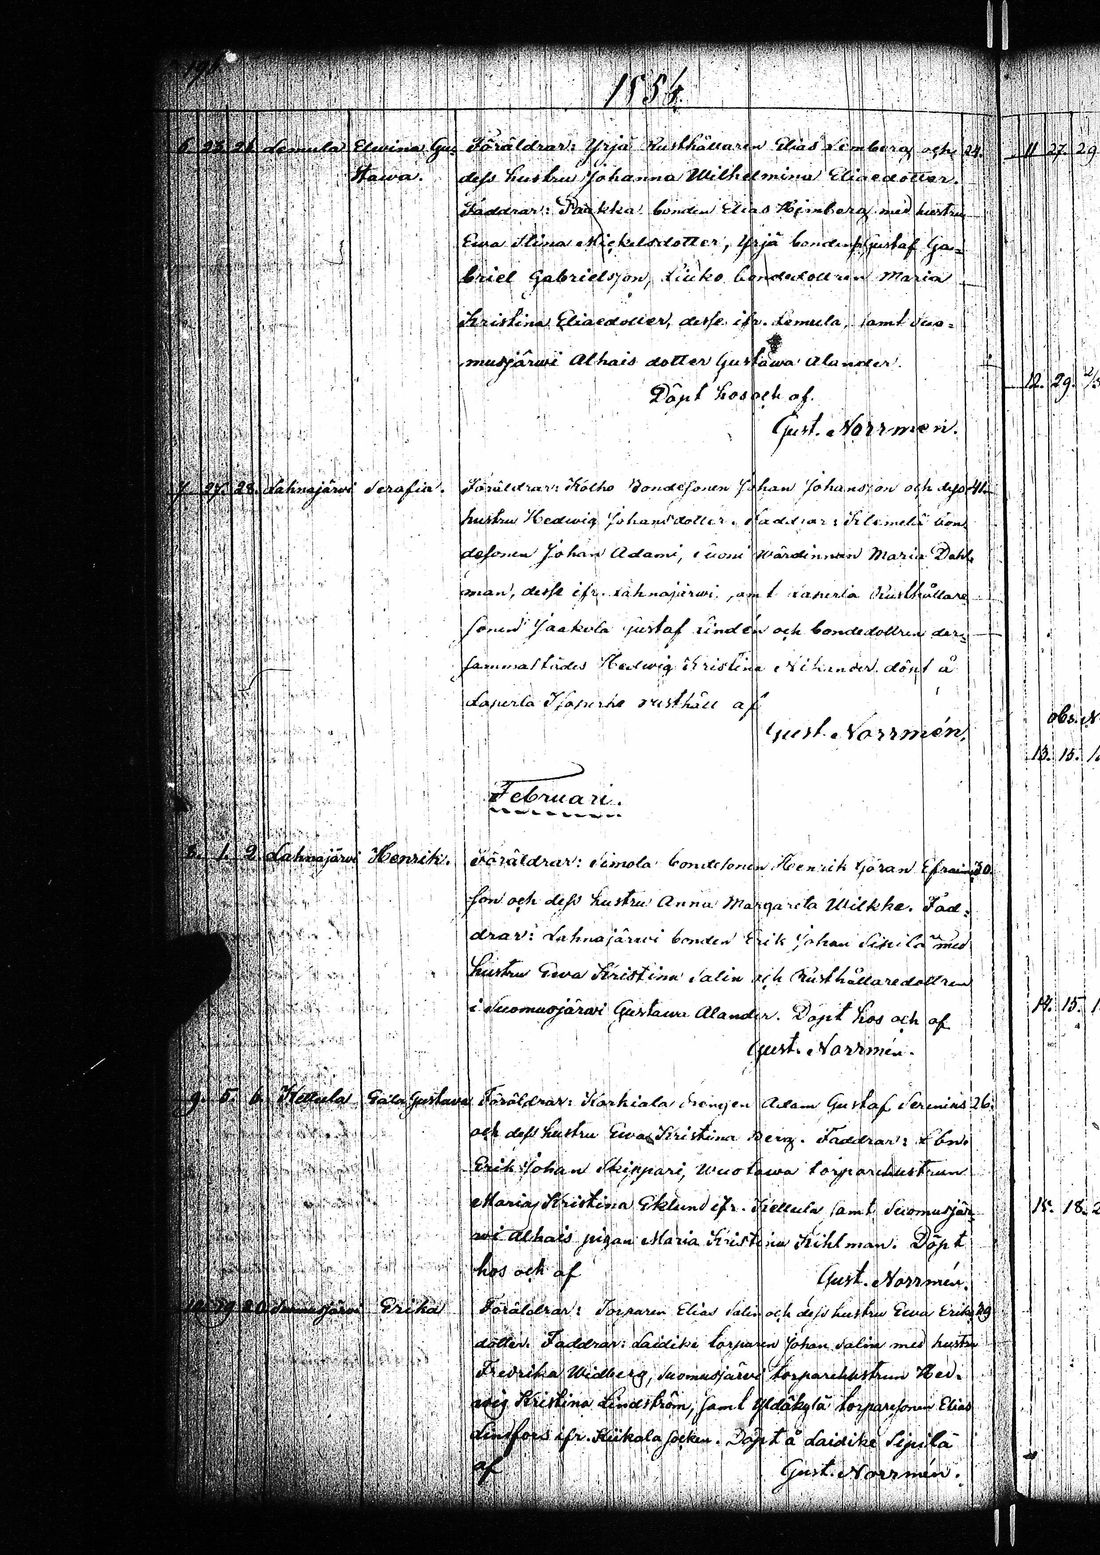 6. 23. 26. Lemula Elwina Gu- Föräldrar: Yrjä Rusthållaren Elias Lemberg och 24.
stawa. dess hustru Johanna Wilhelmina Eliaedotter.
Faddrar: bonden Elias Hjmberg med hustru
Ewa Stina Mickelsdotter, Yrjä Gustaf Ga-
briel Gabrielsson, bondedottren Maria
Kristina Eliaedotter, desse ifr. Lemula, samt Suo-
musjärwi Alhais dotter Gustawa Alander.
Döpt hos och af
Gust. Norrmén.
7. 27. 28. Lahnajärwi Serafia. Föräldrar: Kolho Bondesonen Johan Johansson och dess 41.
hustru Hedwig Johansdotter. Faddrar: Klemelä bon
desonen Johan Adami, Suoni wärdinnan Maria Dahl-
man, desse ifr. Lahnajärwi, samt Laperla Rusthållare
sonen Jaakola Gustaf Lindén och bondedottren der-
sammastädes Hedwig Kristina Nikander. döpt å
Laperla rusthåll af
Gust. Norrmén.
Februari.
8. 1. 2. Lahnajärwi Henrik. Föräldrar: Simola bondesonen Henrik Göran Efraims- 30.
son och dess hustru Anna Margareta Wilkke. Fad-
drar: Lahnajärwi bonden Erik Johan Sipilä med
hustru Ewa Kristina Salin och Rusthållaredottren
i Suomusjärwi Gustawa Alander. Döpt hos och af
Gust. Norrmén.
9. 5. 6. Kettula Gustava Föräldrar: Karkiala drengen Adam Gustaf Serenius 26.
och dess hustru Ewa Kristina Berg. Faddrar:
Erik Johan Skippari, Wuotawa torparehustrun
Maria Kristina Eklund ifr. Kettula samt Suomusjär-
wi Alhais pigan Maria Kristina Kihlman. Döpt
hos och af Gust. Norrmén.
10. 19. 20. Suomusjärwi Erika Föräldrar: Torparen Elias Salin och dess hustru Ewa Eriks- 39
dotter. Faddrar: Laidike torparen Johan Salin med hustru
Fredrika Widberg, Suomusjärwi torparehustrun Hed-
wig Kristina Lindström, samt Yldäkylä torparesonen Elias
Linfors ifr. Kiikala socken. Döpt å Laidike Sipilä
af Gust. Norrmén.
11 27. 29
12. 29.
13. 15.
14. 15.
15. 18. 2